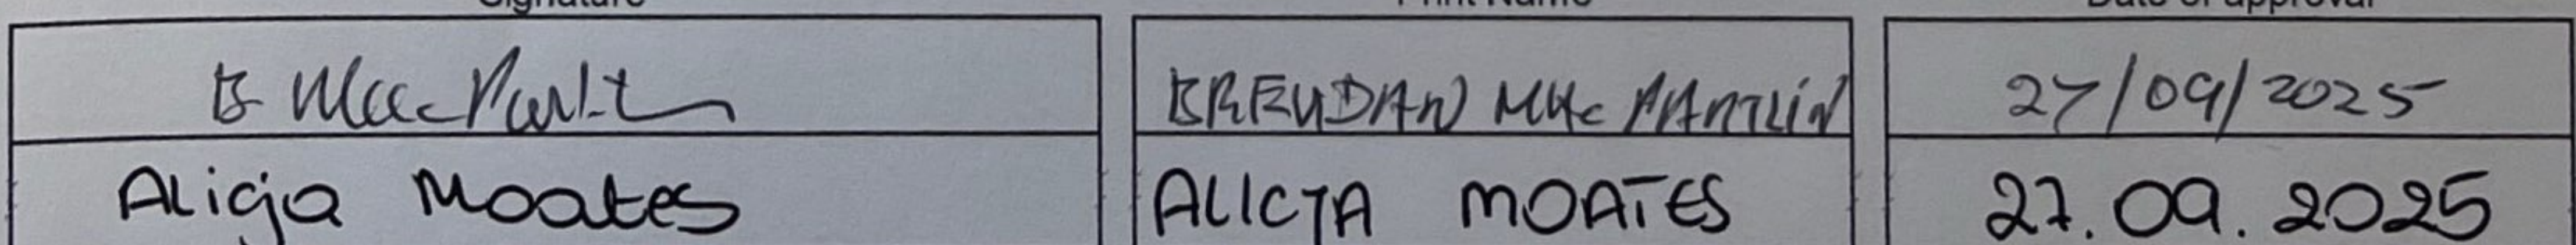 Signature Print Name Date of approval
B Mac Partlin BRENDAN MAC PARTLIN 27/09/2025
Alicja Moates ALICJA MOATES 27.09.2025